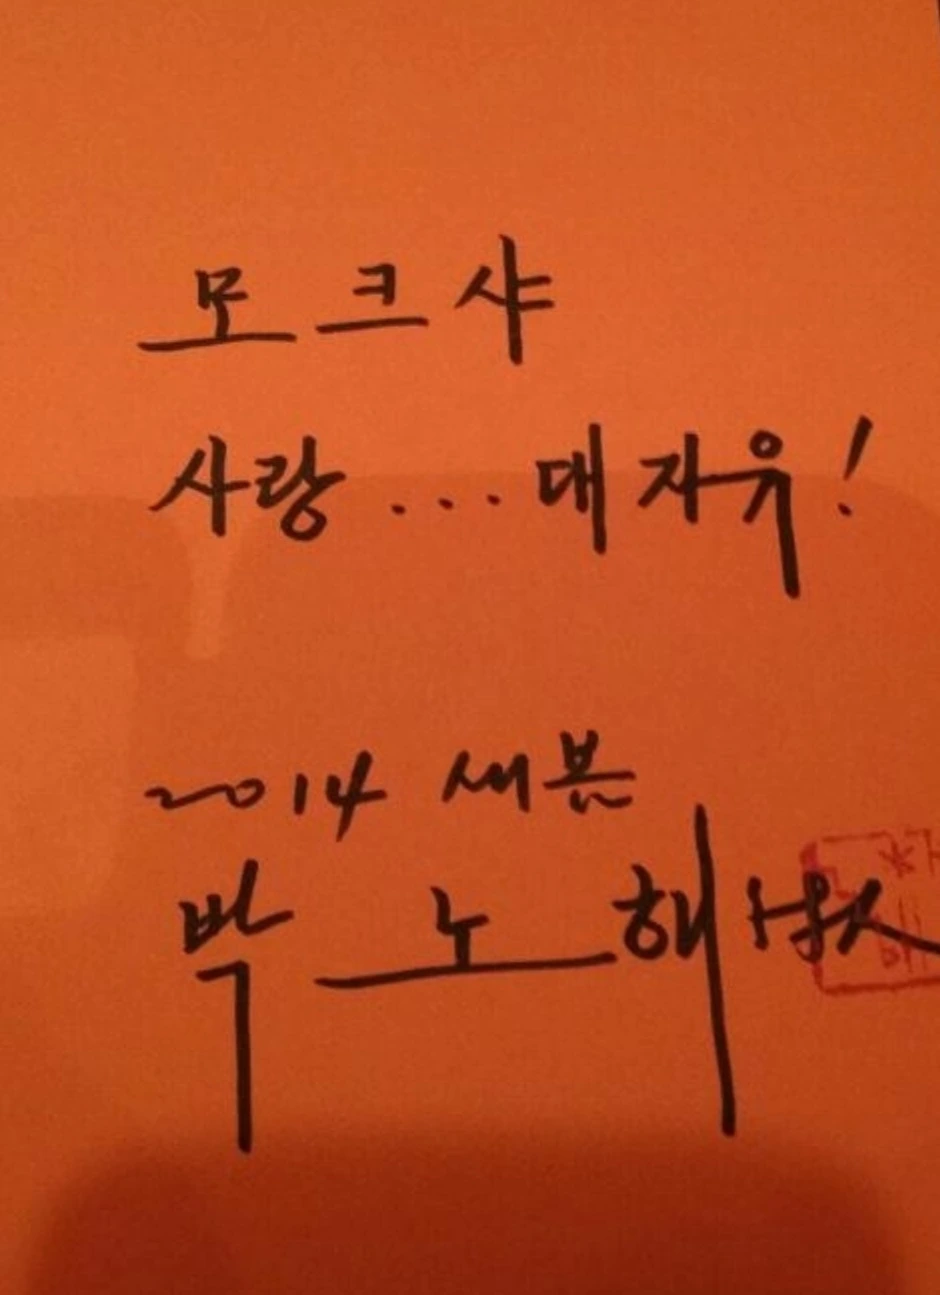 모크샤
사랑... 대자유!
2014 새봄
박노해